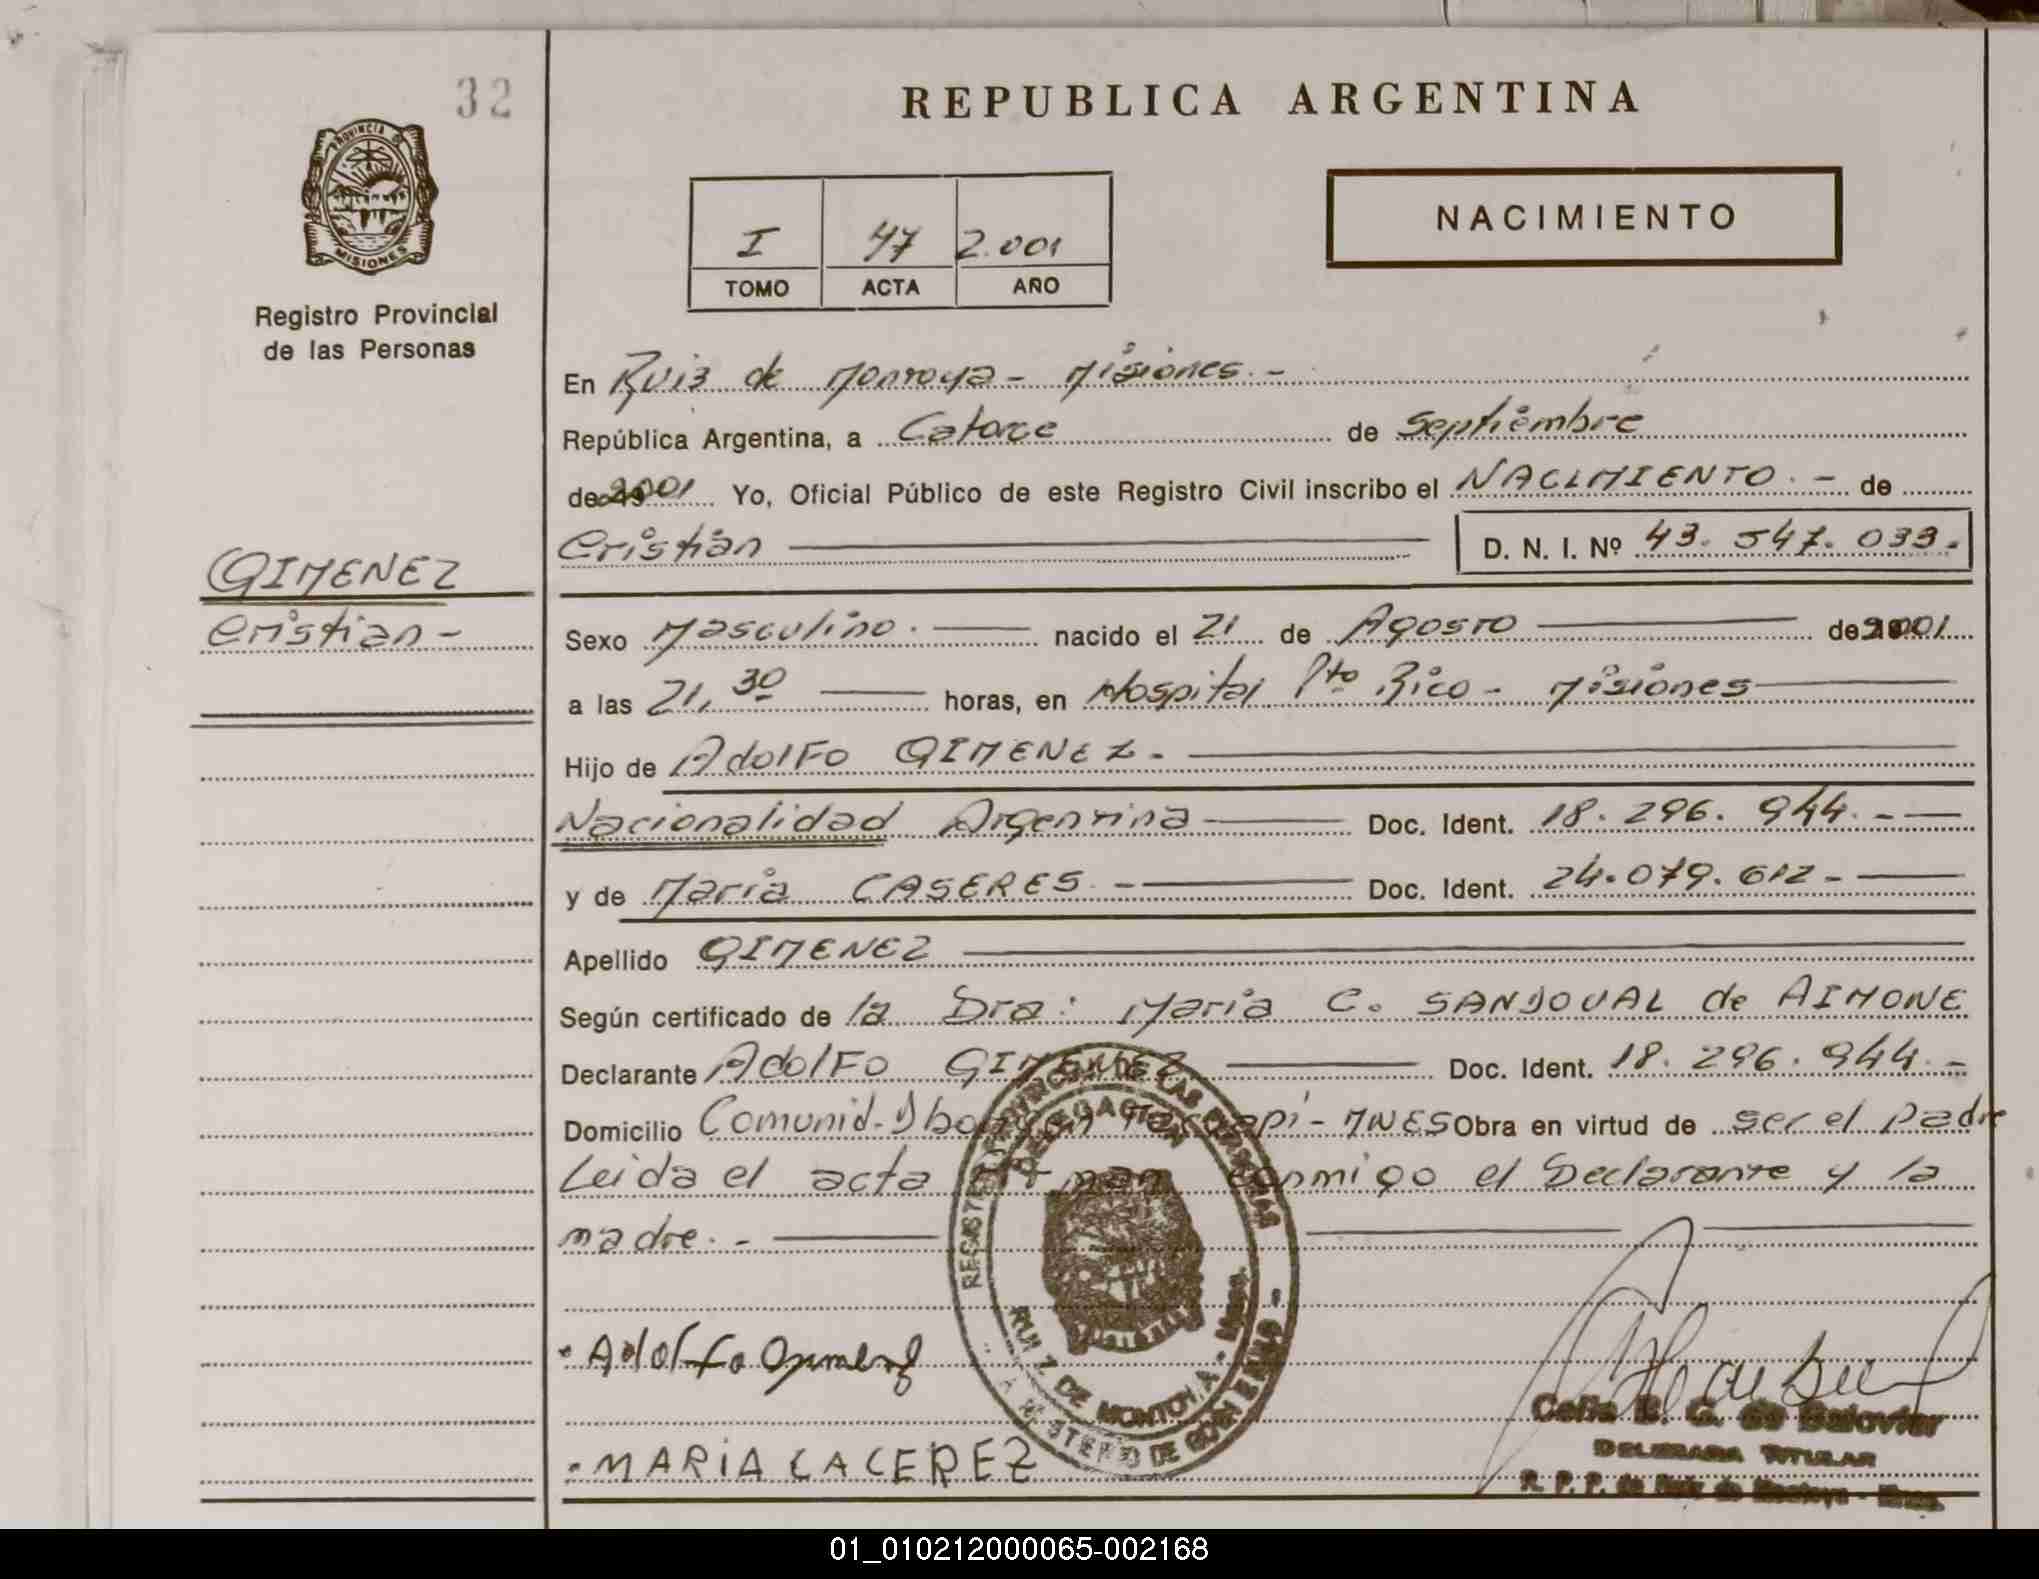 32
REPUBLICA ARGENTINA
PROVINCIA DE
MISIONES
Registro Provincial
de las Personas
I 47 2.001
TOMO ACTA AÑO
NACIMIENTO
En Ruiz de Montoya - Misiones. -
República Argentina, a Catorce de Septiembre
de 2001 Yo, Oficial Público de este Registro Civil inscribo el NACIMIENTO. - de
Cristian D. N. I. Nº 43. 547. 033.
GIMENEZ
Cristian -
Sexo Masculino. nacido el 21 de Agosto de 2001
a las 21,30 horas, en Hospital Pto Rico - Misiones
Hijo de Adolfo GIMENEZ.
Nacionalidad Argentina Doc. Ident. 18. 296. 944. -
y de Maria CASERES. - Doc. Ident. 24.079.612 -
Apellido GIMENEZ
Según certificado de la Dra: Maria C. SANDOVAL de AIMONE
Declarante Adolfo GIMENEZ Doc. Ident. 18. 296. 944. -
Domicilio Comunid. - MNES Obra en virtud de ser el padre
Leida el acta firman conmigo el Declarante y la
madre. -
REGISTRO PROVINCIAL DE LAS PERSONAS
DELEGACION
RUIZ DE MONTOYA - Mnes.
MINISTERIO DE GOBIERNO
Adolfo Gimenez
MARIA CACEREZ
Celia E. G. de
DELEGADA TITULAR
R. P. P. de Ruiz de Montoya - Mnes.
01_010212000065-002168